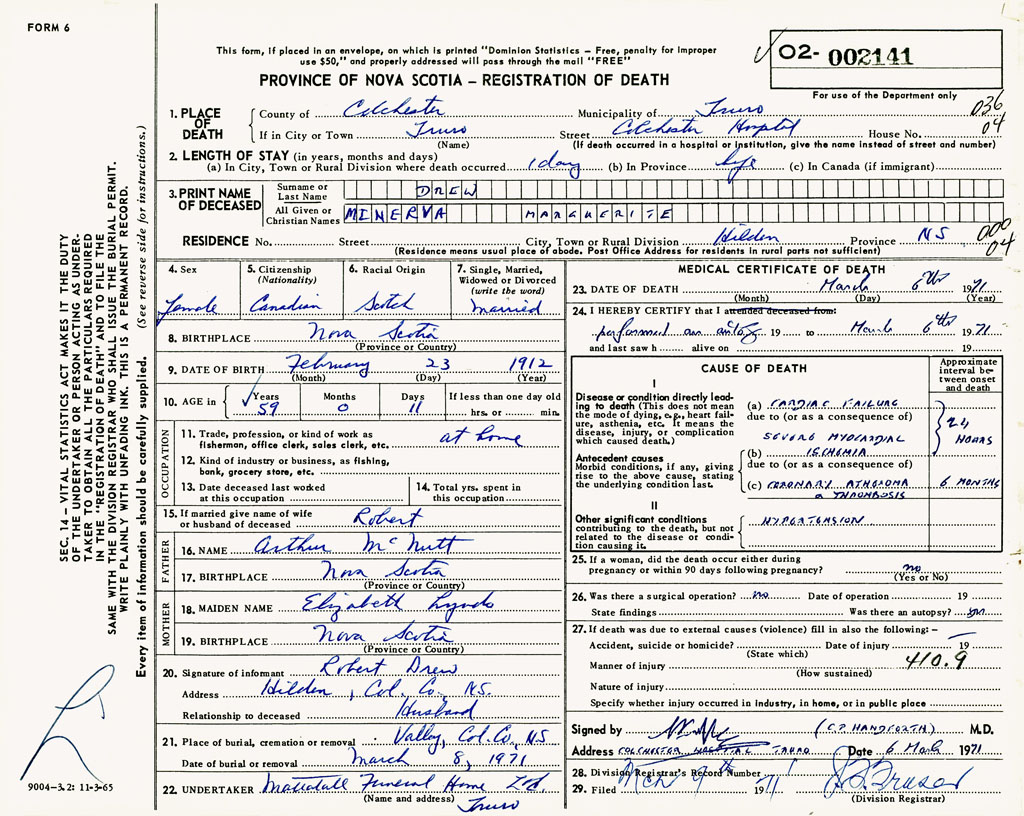 FORM 6
This form, if placed in an envelope, on which is printed "Dominion Statistics – Free, penalty for improper
use $50," and properly addressed will pass through the mail "FREE"
PROVINCE OF NOVA SCOTIA – REGISTRATION OF DEATH
02- 002141
For use of the Department only
036
04
1. PLACE OF DEATH
County of Colchester Municipality of Truro
If in City or Town Truro Street Colchester Hospital House No.
(Name) (If death occurred in a hospital or institution, give the name instead of street and number)
2. LENGTH OF STAY (in years, months and days)
(a) In City, Town or Rural Division where death occurred 1 day (b) In Province life (c) In Canada (if immigrant)
3. PRINT NAME OF DECEASED
Surname or Last Name DREW
All Given or Christian Names MINERVA MARGUERITE
RESIDENCE No. Street City, Town or Rural Division Hilden Province NS
000
04
(Residence means usual place of abode. Post Office Address for residents in rural parts not sufficient)
4. Sex Female
5. Citizenship (Nationality) Canadian
6. Racial Origin Scotch
7. Single, Married, Widowed or Divorced (write the word) Married
8. BIRTHPLACE Nova Scotia
(Province or Country)
9. DATE OF BIRTH February 23 1912
(Month) (Day) (Year)
10. AGE in Years 59 Months 0 Days 11 If less than one day old hrs. or min.
OCCUPATION
11. Trade, profession, or kind of work as
fishermen, office clerk, sales clerk, etc. at home
12. Kind of industry or business, as fishing,
bank, grocery store, etc.
13. Date deceased last worked
at this occupation
14. Total yrs. spent in
this occupation
15. If married give name of wife
or husband of deceased Robert
FATHER
16. NAME Arthur McNutt
17. BIRTHPLACE Nova Scotia
(Province or Country)
MOTHER
18. MAIDEN NAME Elizabeth Lynds
19. BIRTHPLACE Nova Scotia
(Province or Country)
20. Signature of informant Robert Drew
Address Hilden, Col. Co., N.S.
Relationship to deceased Husband
21. Place of burial, cremation or removal Valley, Col. Co., N.S
Date of burial or removal March 8, 1971
22. UNDERTAKER Mattatall Funeral Home Ltd.
(Name and address) Truro
MEDICAL CERTIFICATE OF DEATH
23. DATE OF DEATH March 6th 1971
(Month) (Day) (Year)
24. I HEREBY CERTIFY that I attended deceased from:
performed an 19 to March 6th 1971
and last saw h alive on 19
CAUSE OF DEATH
Approximate interval between onset and death
I
Disease or condition directly leading to death (This does not mean the mode of dying, e.g., heart failure, asthenia, etc. It means the disease, injury, or complication which caused death.)
(a) CARDIAC FAILURE
due to (or as a consequence of)
SEVERE MYOCARDIAL
(b) ISCHEMIA
24 HOURS
Antecedent causes
Morbid conditions, if any, giving rise to the above cause, stating the underlying condition last.
due to (or as a consequence of)
(c) CORONARY ATHEROMA
& THROMBOSIS
6 MONTHS
II
Other significant conditions
contributing to the death, but not related to the disease or condition causing it.
HYPERTENSION
25. If a woman, did the death occur either during
pregnancy or within 90 days following pregnancy? no
(Yes or No)
26. Was there a surgical operation? no Date of operation 19
State findings Was there an autopsy? yes
27. If death was due to external causes (violence) fill in also the following:–
Accident, suicide or homicide? Date of injury 19
(State which)
410.9
Manner of injury
(How sustained)
Nature of injury
Specify whether injury occurred in industry, in home, or in public place
Signed by (C.P. HANDFORTH) M.D.
Address COLCHESTER HOSPITAL TRURO Date 6 March 1971
28. Division Registrar's Record Number
29. Filed Mch 9th 1971
(Division Registrar)
SEC. 14 – VITAL STATISTICS ACT MAKES IT THE DUTY
OF THE UNDERTAKER OR PERSON ACTING AS UNDER-
TAKER TO OBTAIN ALL THE PARTICULARS REQUIRED
IN THE "REGISTRATION OF DEATH" AND TO FILE THE
SAME WITH THE DIVISION REGISTRAR WHO SHALL ISSUE THE BURIAL PERMIT.
WRITE PLAINLY WITH UNFADING INK. THIS IS A PERMANENT RECORD.
Every item of information should be carefully supplied. (See reverse side for instructions.)
9004–3.2: 11-3-65